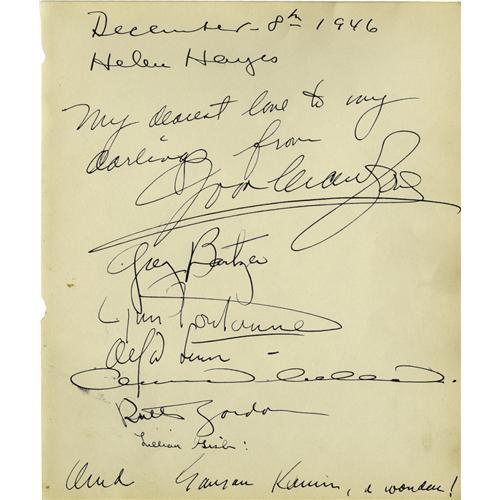 December 8th 1946
Helen Hayes
My dearest love to my
darlings from
Joan Crawford
Greg Bautzer
Lynn Fontanne
Alfred Lunt
Ruth Gordon
Lillian Gish:
And Garson Kanin, a wonder!